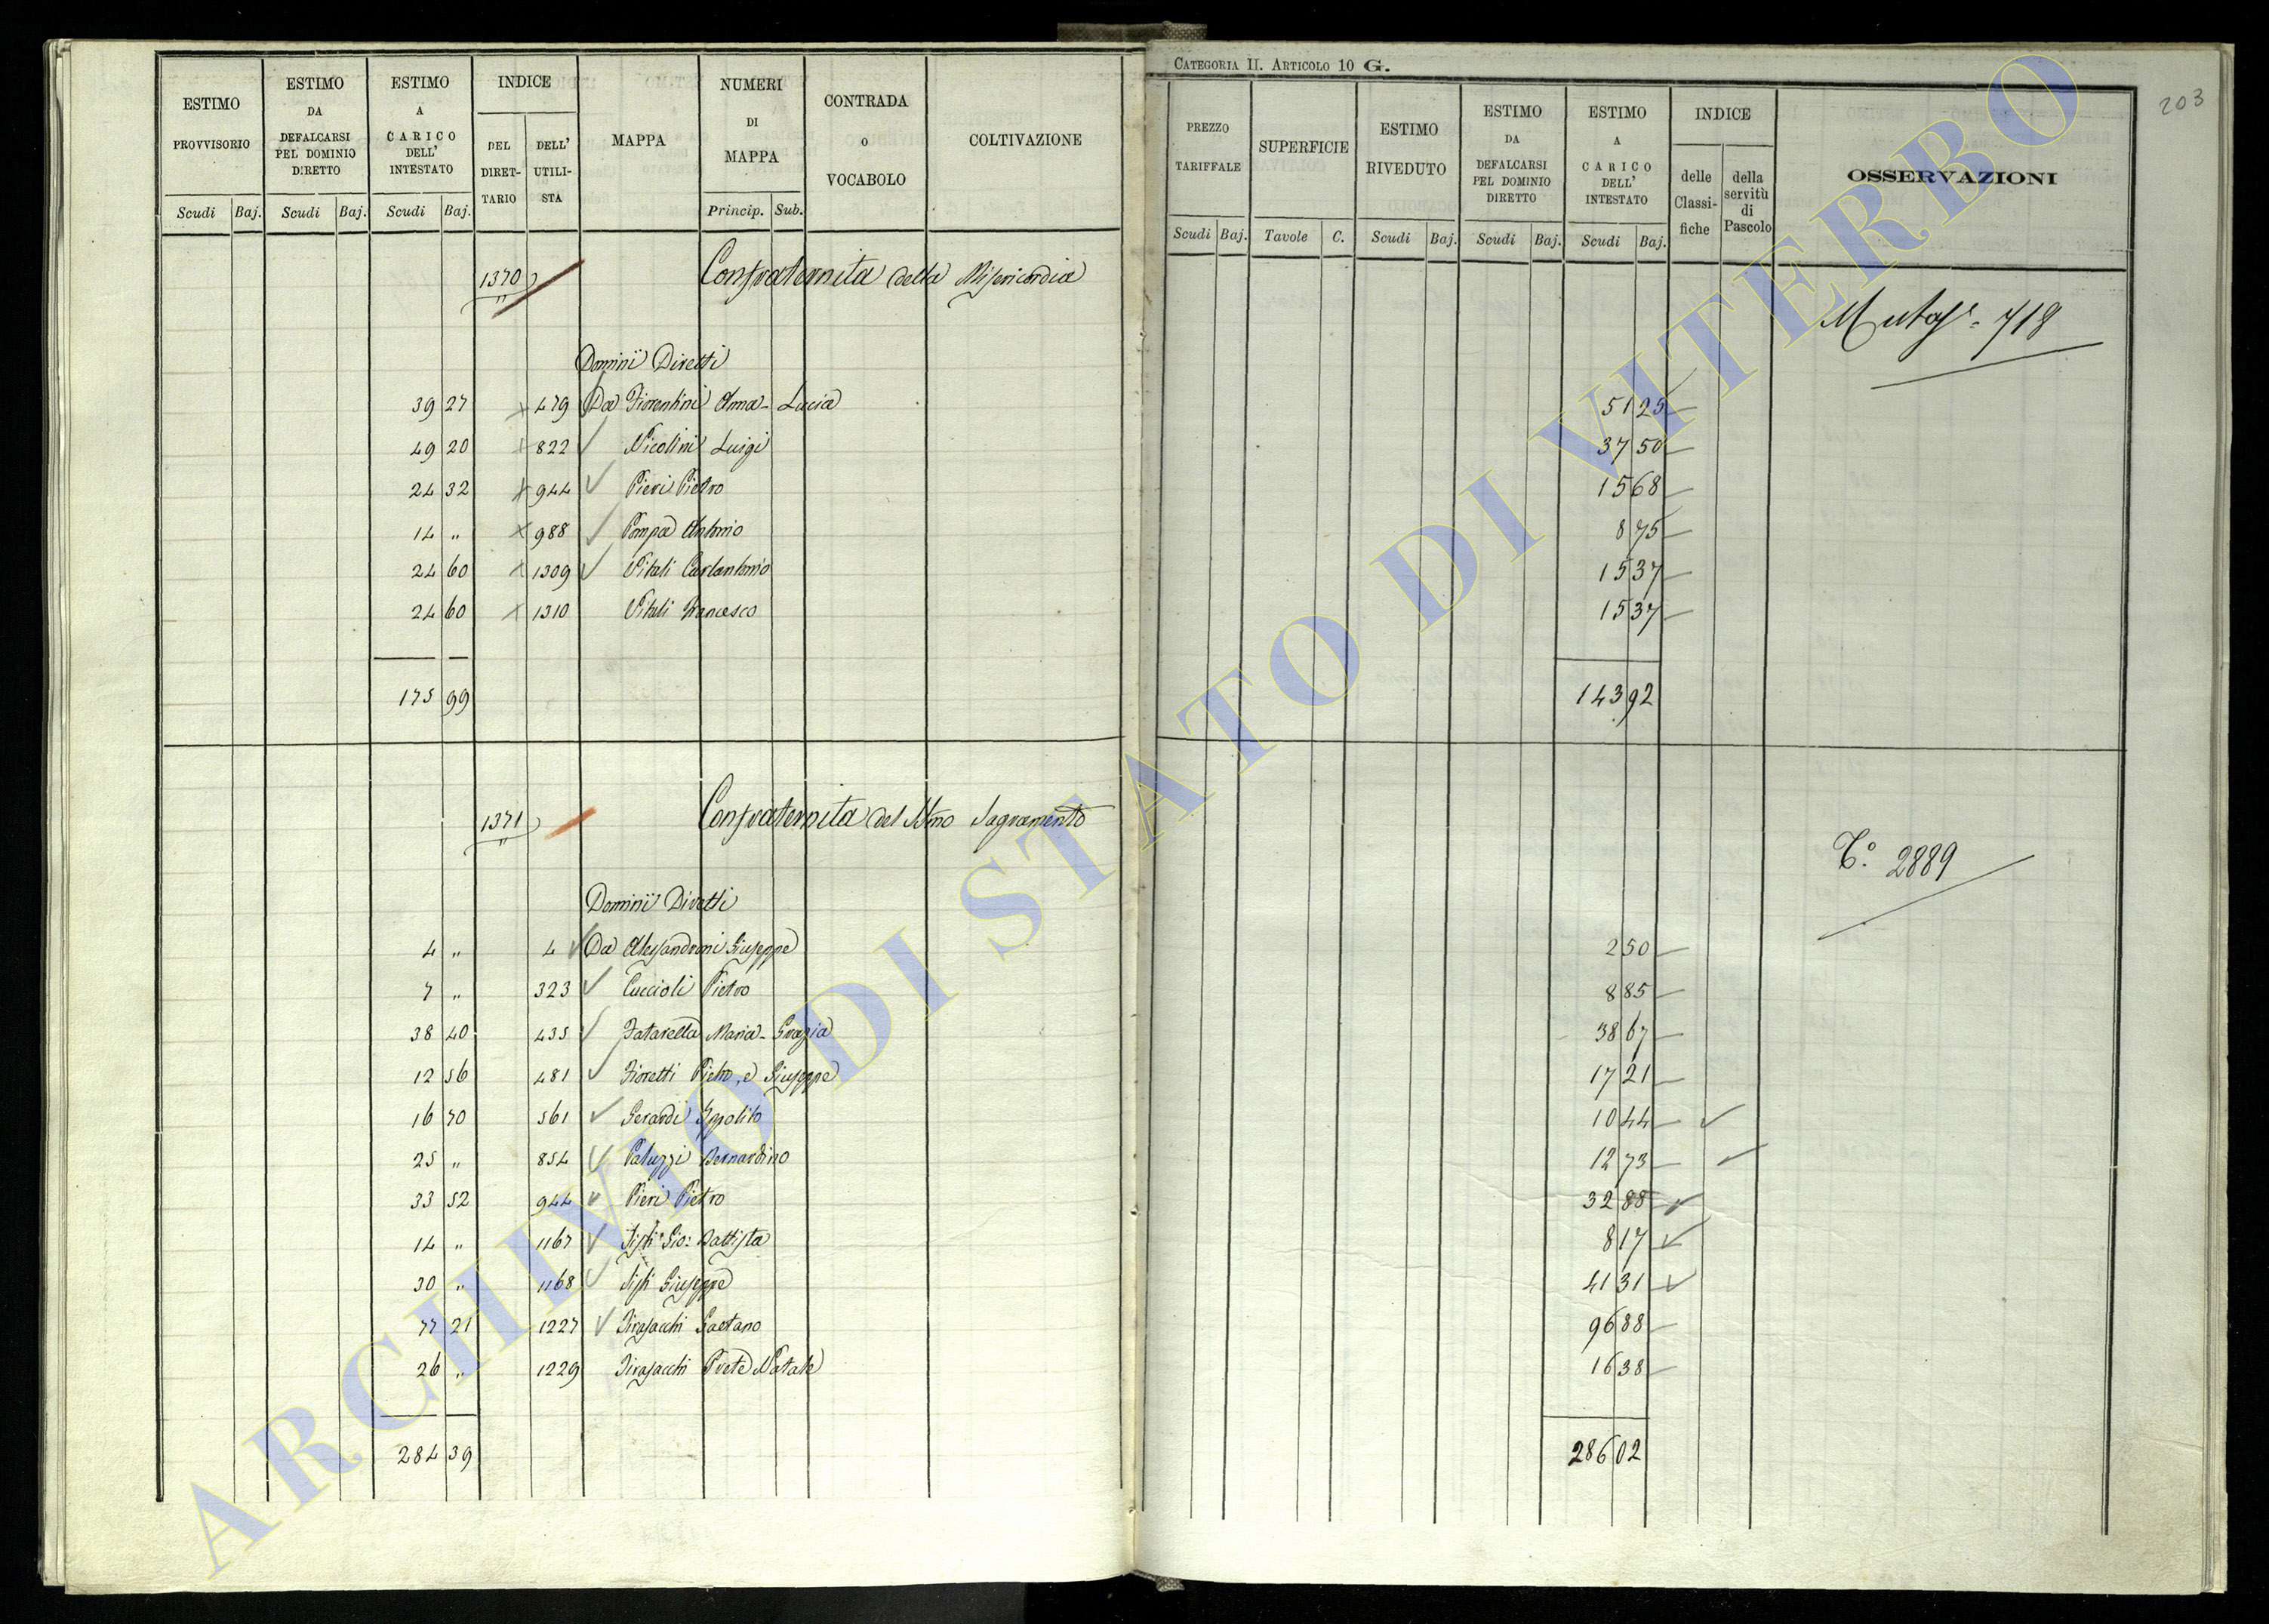 CATEGORIA II. ARTICOLO 10 G.
203
ESTIMO PROVVISORIO
ESTIMO DA DEFALCARSI PEL DOMINIO DIRETTO
ESTIMO A CARICO DELL' INTESTATO
INDICE
DEL DIRET-TARIO
DELL' UTILI-STA
MAPPA
NUMERI DI MAPPA
CONTRADA o VOCABOLO
COLTIVAZIONE
Scudi Baj. Scudi Baj. Scudi Baj. Princip. Sub.
PREZZO TARIFFALE
SUPERFICIE
ESTIMO RIVEDUTO
ESTIMO DA DEFALCARSI PEL DOMINIO DIRETTO
ESTIMO A CARICO DELL' INTESTATO
INDICE
delle Classi-fiche
della servitù di Pascolo
OSSERVAZIONI
Scudi Baj. Tavole C. Scudi Baj. Scudi Baj. Scudi Baj.
1370 Confraternita della Misericordia
718
Dominii Diretti
39 27 479 Da Fiorentini Anna-Lucia 51 25
49 20 822 Nicolini Luigi 37 50
24 32 944 Pieri Pietro 15 68
14 " 988 Pompa Antonio 8 75
24 60 1309 Vitali Carlantonio 15 37
24 60 1310 Vitali Francesco 15 37
175 99 143 92
1371 Confraternita del SSmo Sagramento
2889
Dominii Diretti
4 " 4 Da Alessandroni Giuseppe 2 50
7 " 323 Cuccioli Pietro 8 85
38 40 435 Fatarella Maria-Grazia 38 67
12 56 481 Fioretti Pietro, e Giuseppe 17 21
16 70 561 Gerardi Ippolito 10 44
25 " 854 Paluzzi Bernardino 12 73
33 52 944 Pieri Pietro 32 88
14 " 1167 Sisti Gio: Battista 8 17
30 " 1168 Sisti Giuseppe 41 31
77 21 1227 Tirasacchi Gaetano 96 88
26 " 1229 Tirasacchi Prete Natale 16 38
284 39 286 02
ARCHIVIO DI STATO DI VITERBO